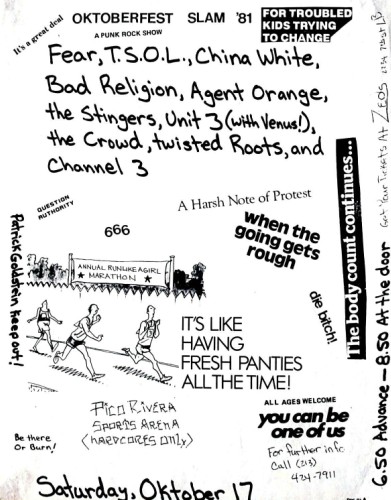 It's a great deal
OKTOBERFEST SLAM '81
A PUNK ROCK SHOW
FOR TROUBLED
KIDS TRYING
TO CHANGE
Fear, T.S.O.L., China White,
Bad Religion, Agent Orange,
the Stingers, Unit 3 (with Venus!),
the Crowd, twisted Roots, and
Channel 3
Get Your Tickets At Zeds
QUESTION
AUTHORITY
A Harsh Note of Protest
666
when the
going gets
rough
The body count continues...
Patrick Goldstein keep out!
ANNUAL RUN LIKE A GIRL
★ MARATHON ★
die bitch!
IT'S LIKE
HAVING
FRESH PANTIES
ALL THE TIME!
6.50 Advance — 8.50 At the door
Pico Rivera
Sports Arena
(HARDCORES ONLY)
ALL AGES WELCOME
you can be
one of us
Be there
Or Burn!
For further info
Call (213)
424-7911
Saturday, Oktober 17